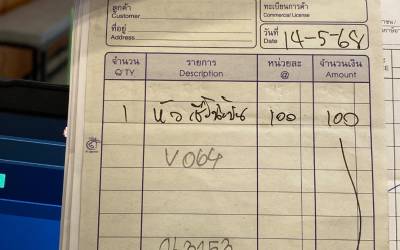 ลูกค้า
Customer
ทะเบียนการค้า
Commercial License
ที่อยู่
Address
วันที่
Date 14-5-68
จำนวน รายการ หน่วยละ จำนวนเงิน
Q'TY Description @ Amount
1 หัว 100 100
V064